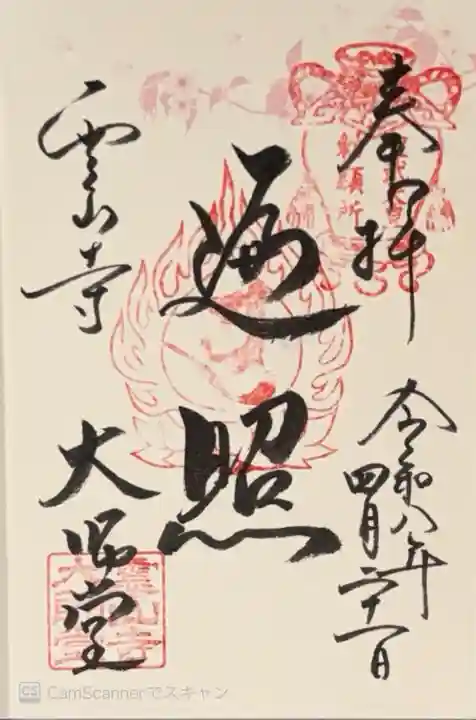 奉拝
勅願所
令和八年
四月二十一日
遍照
霊山寺
大師堂
CS CamScannerでスキャン